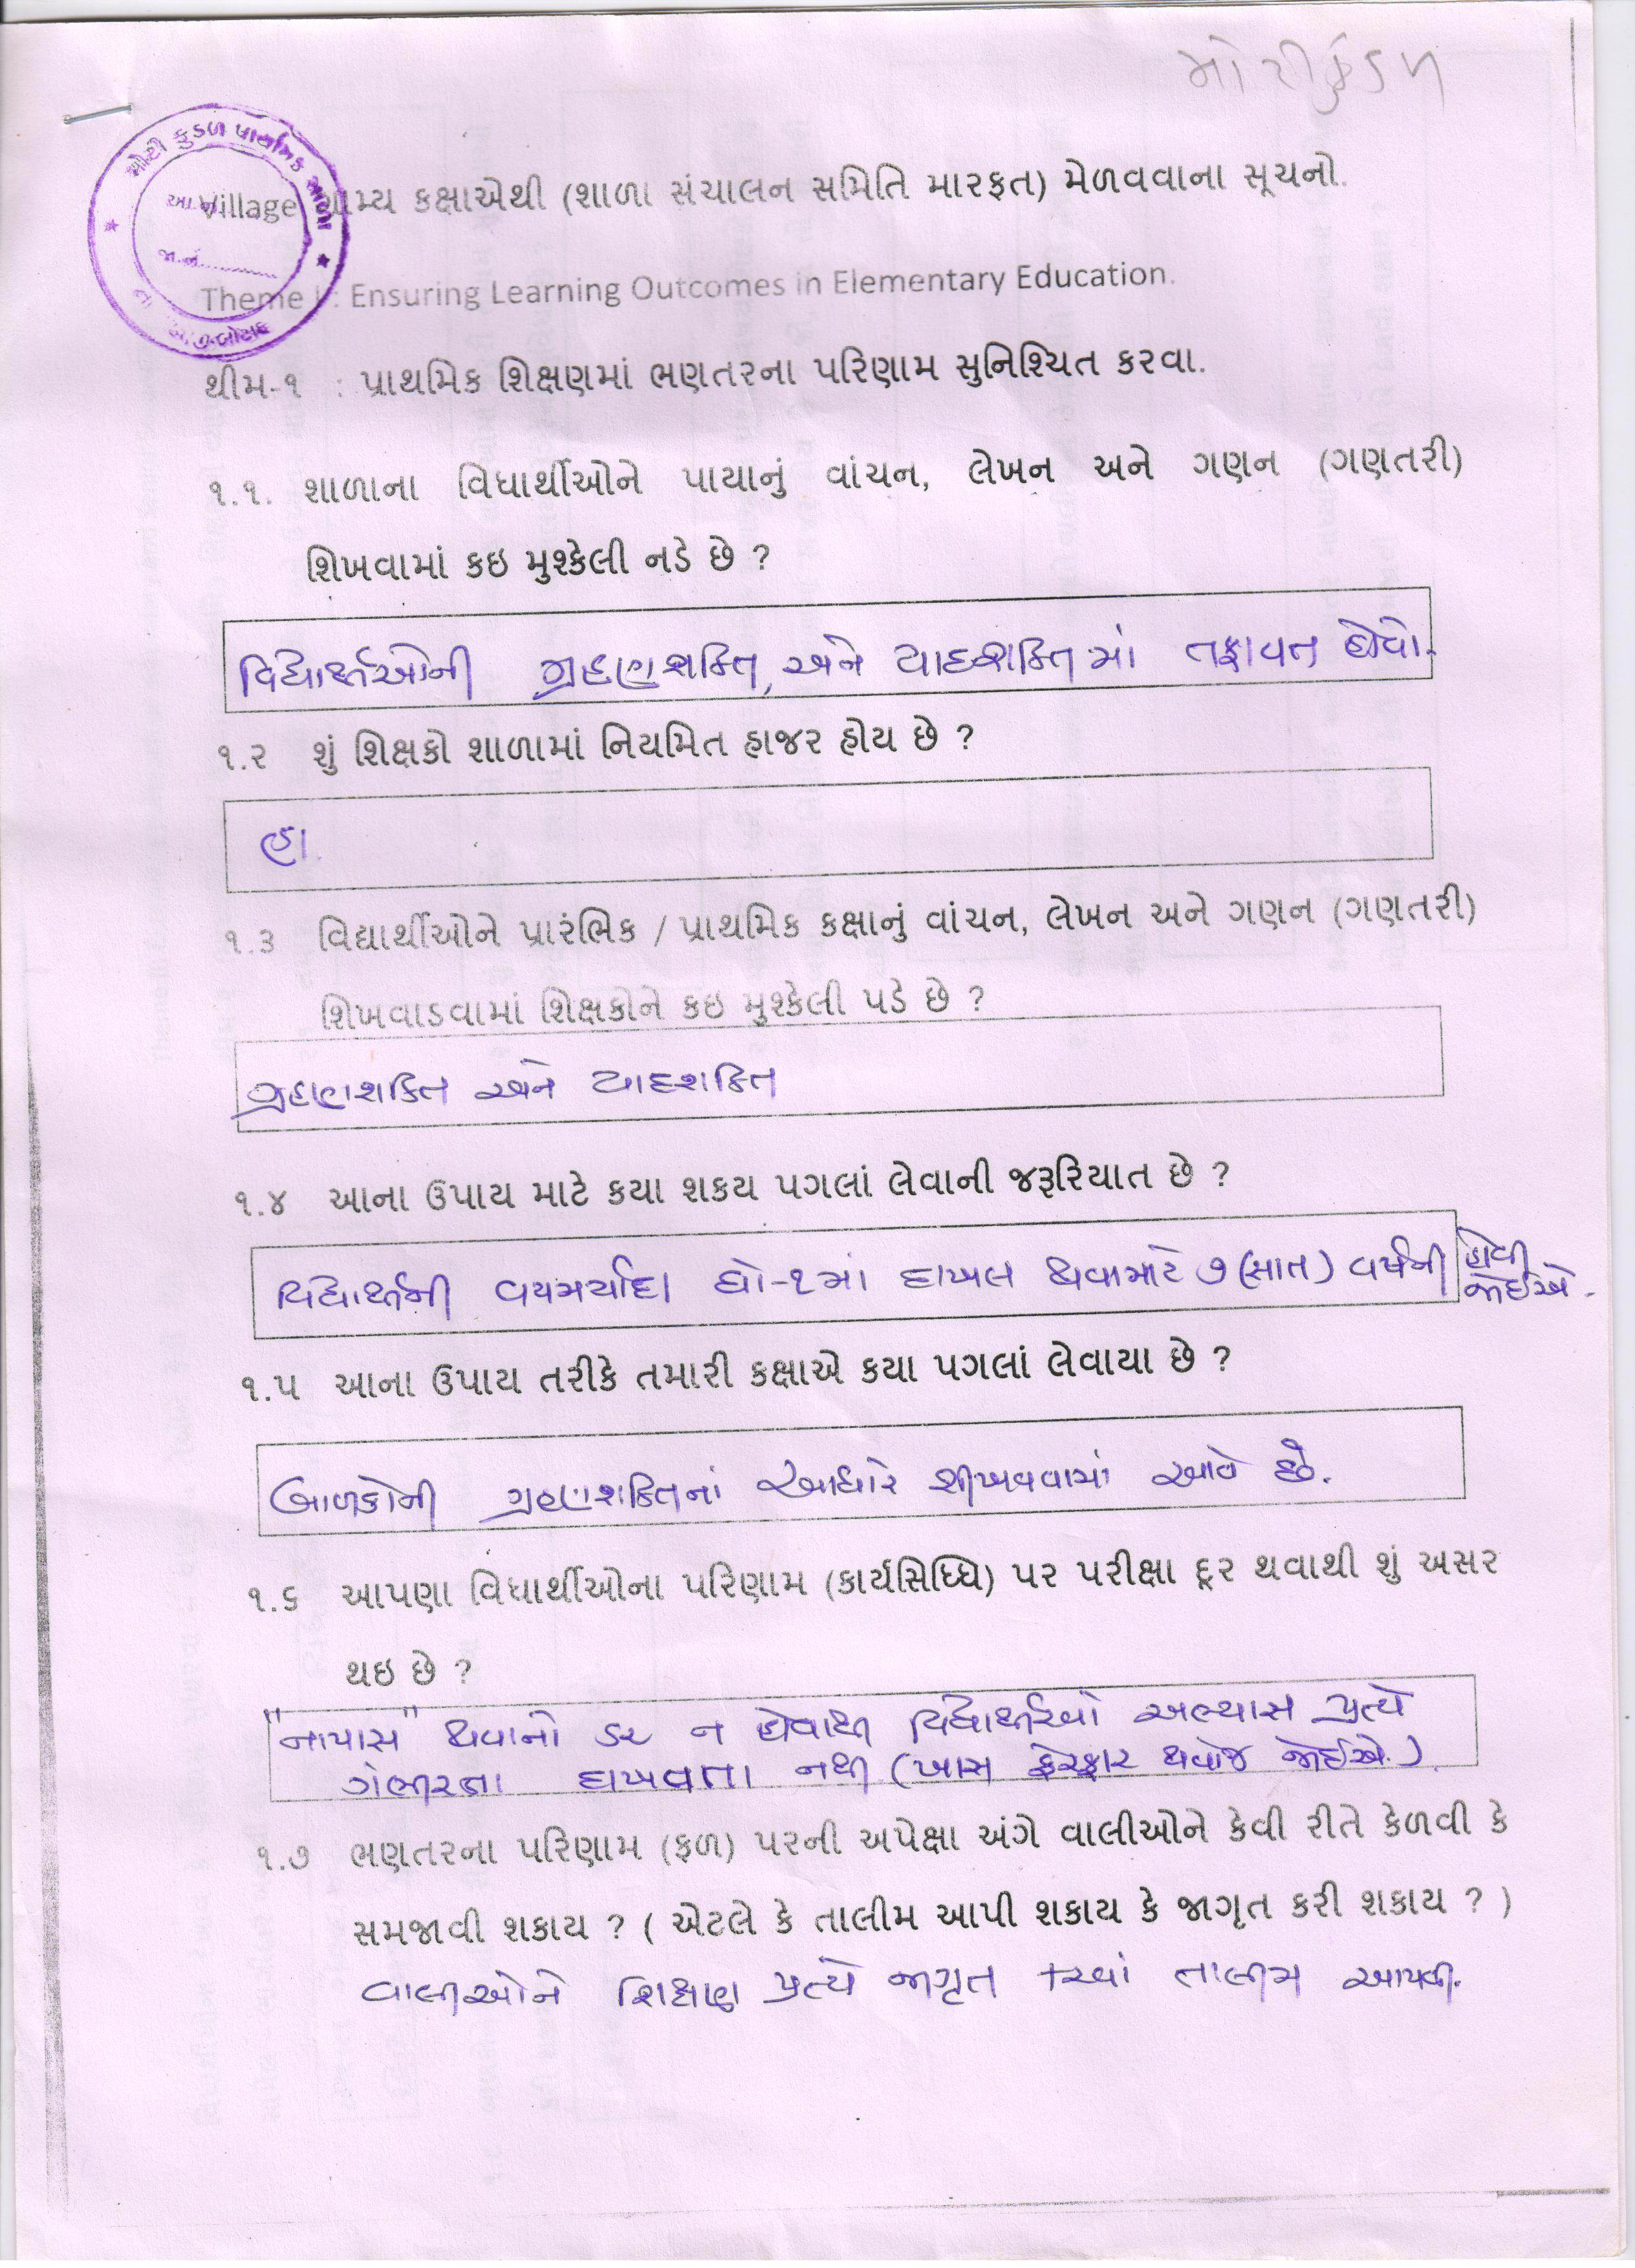 મોટીકુંડળ
મોટી કુંડળ પ્રાથમિક શાળા
Village ગ્રામ્ય કક્ષાએથી (શાળા સંચાલન સમિતિ મારફત) મેળવવાના સૂચનો.
જા.નં.
Theme I : Ensuring Learning Outcomes in Elementary Education.
થીમ-૧ : પ્રાથમિક શિક્ષણમાં ભણતરના પરિણામ સુનિશ્ચિત કરવા.
૧.૧. શાળાના વિધાર્થીઓને પાયાનું વાંચન, લેખન અને ગણન (ગણતરી)
શિખવામાં કઇ મુશ્કેલી નડે છે ?
વિદ્યાર્થીઓની ગ્રહણશક્તિ, અને યાદશક્તિમાં તફાવત હોવો.
૧.૨ શું શિક્ષકો શાળામાં નિયમિત હાજર હોય છે ?
હા.
૧.૩ વિદ્યાર્થીઓને પ્રારંભિક / પ્રાથમિક કક્ષાનું વાંચન, લેખન અને ગણન (ગણતરી)
શિખવાડવામાં શિક્ષકોને કઇ મુશ્કેલી પડે છે ?
ગ્રહણશક્તિ અને યાદશક્તિ
૧.૪ આના ઉપાય માટે કયા શકય પગલાં લેવાની જરૂરિયાત છે ?
વિદ્યાર્થીની વયમર્યાદા ધો-૧માં દાખલ થવામાટે ૭ (સાત) વર્ષની હોવી
જોઈએ.
૧.૫ આના ઉપાય તરીકે તમારી કક્ષાએ કયા પગલાં લેવાયા છે ?
બાળકોની ગ્રહણશક્તિનાં આધારે શીખવવામાં આવે છે.
૧.૬ આપણા વિધાર્થીઓના પરિણામ (કાર્યસિધ્ધિ) પર પરીક્ષા દૂર થવાથી શું અસર
થઇ છે ?
"નાપાસ" થવાનો ડર ન હોવાથી વિદ્યાર્થીઓ અભ્યાસ પ્રત્યે
ગંભીરતા દાખવતા નથી (ખાસ ફેરફાર થવોજ જોઈએ.)
૧.૭ ભણતરના પરિણામ (ફળ) પરની અપેક્ષા અંગે વાલીઓને કેવી રીતે કેળવી કે
સમજાવી શકાય ? ( એટલે કે તાલીમ આપી શકાય કે જાગૃત કરી શકાય ? )
વાલીઓને શિક્ષણ પ્રત્યે જાગૃત કરવાં તાલીમ આપવી.